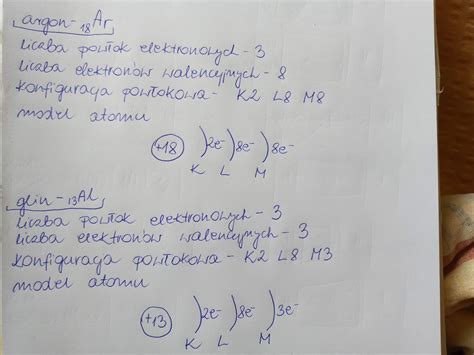 argon - ₁₈Ar
liczba powłok elektronowych - 3
liczba elektronów walencyjnych - 8
konfiguracja powłokowa - K2 L8 M8
model atomu
+18 )2e⁻ )8e⁻ )8e⁻
K L M
glin - ₁₃Al
liczba powłok elektronowych - 3
liczba elektronów walencyjnych - 3
konfiguracja powłokowa - K2 L8 M3
model atomu
+13 )2e⁻ )8e⁻ )3e⁻
K L M